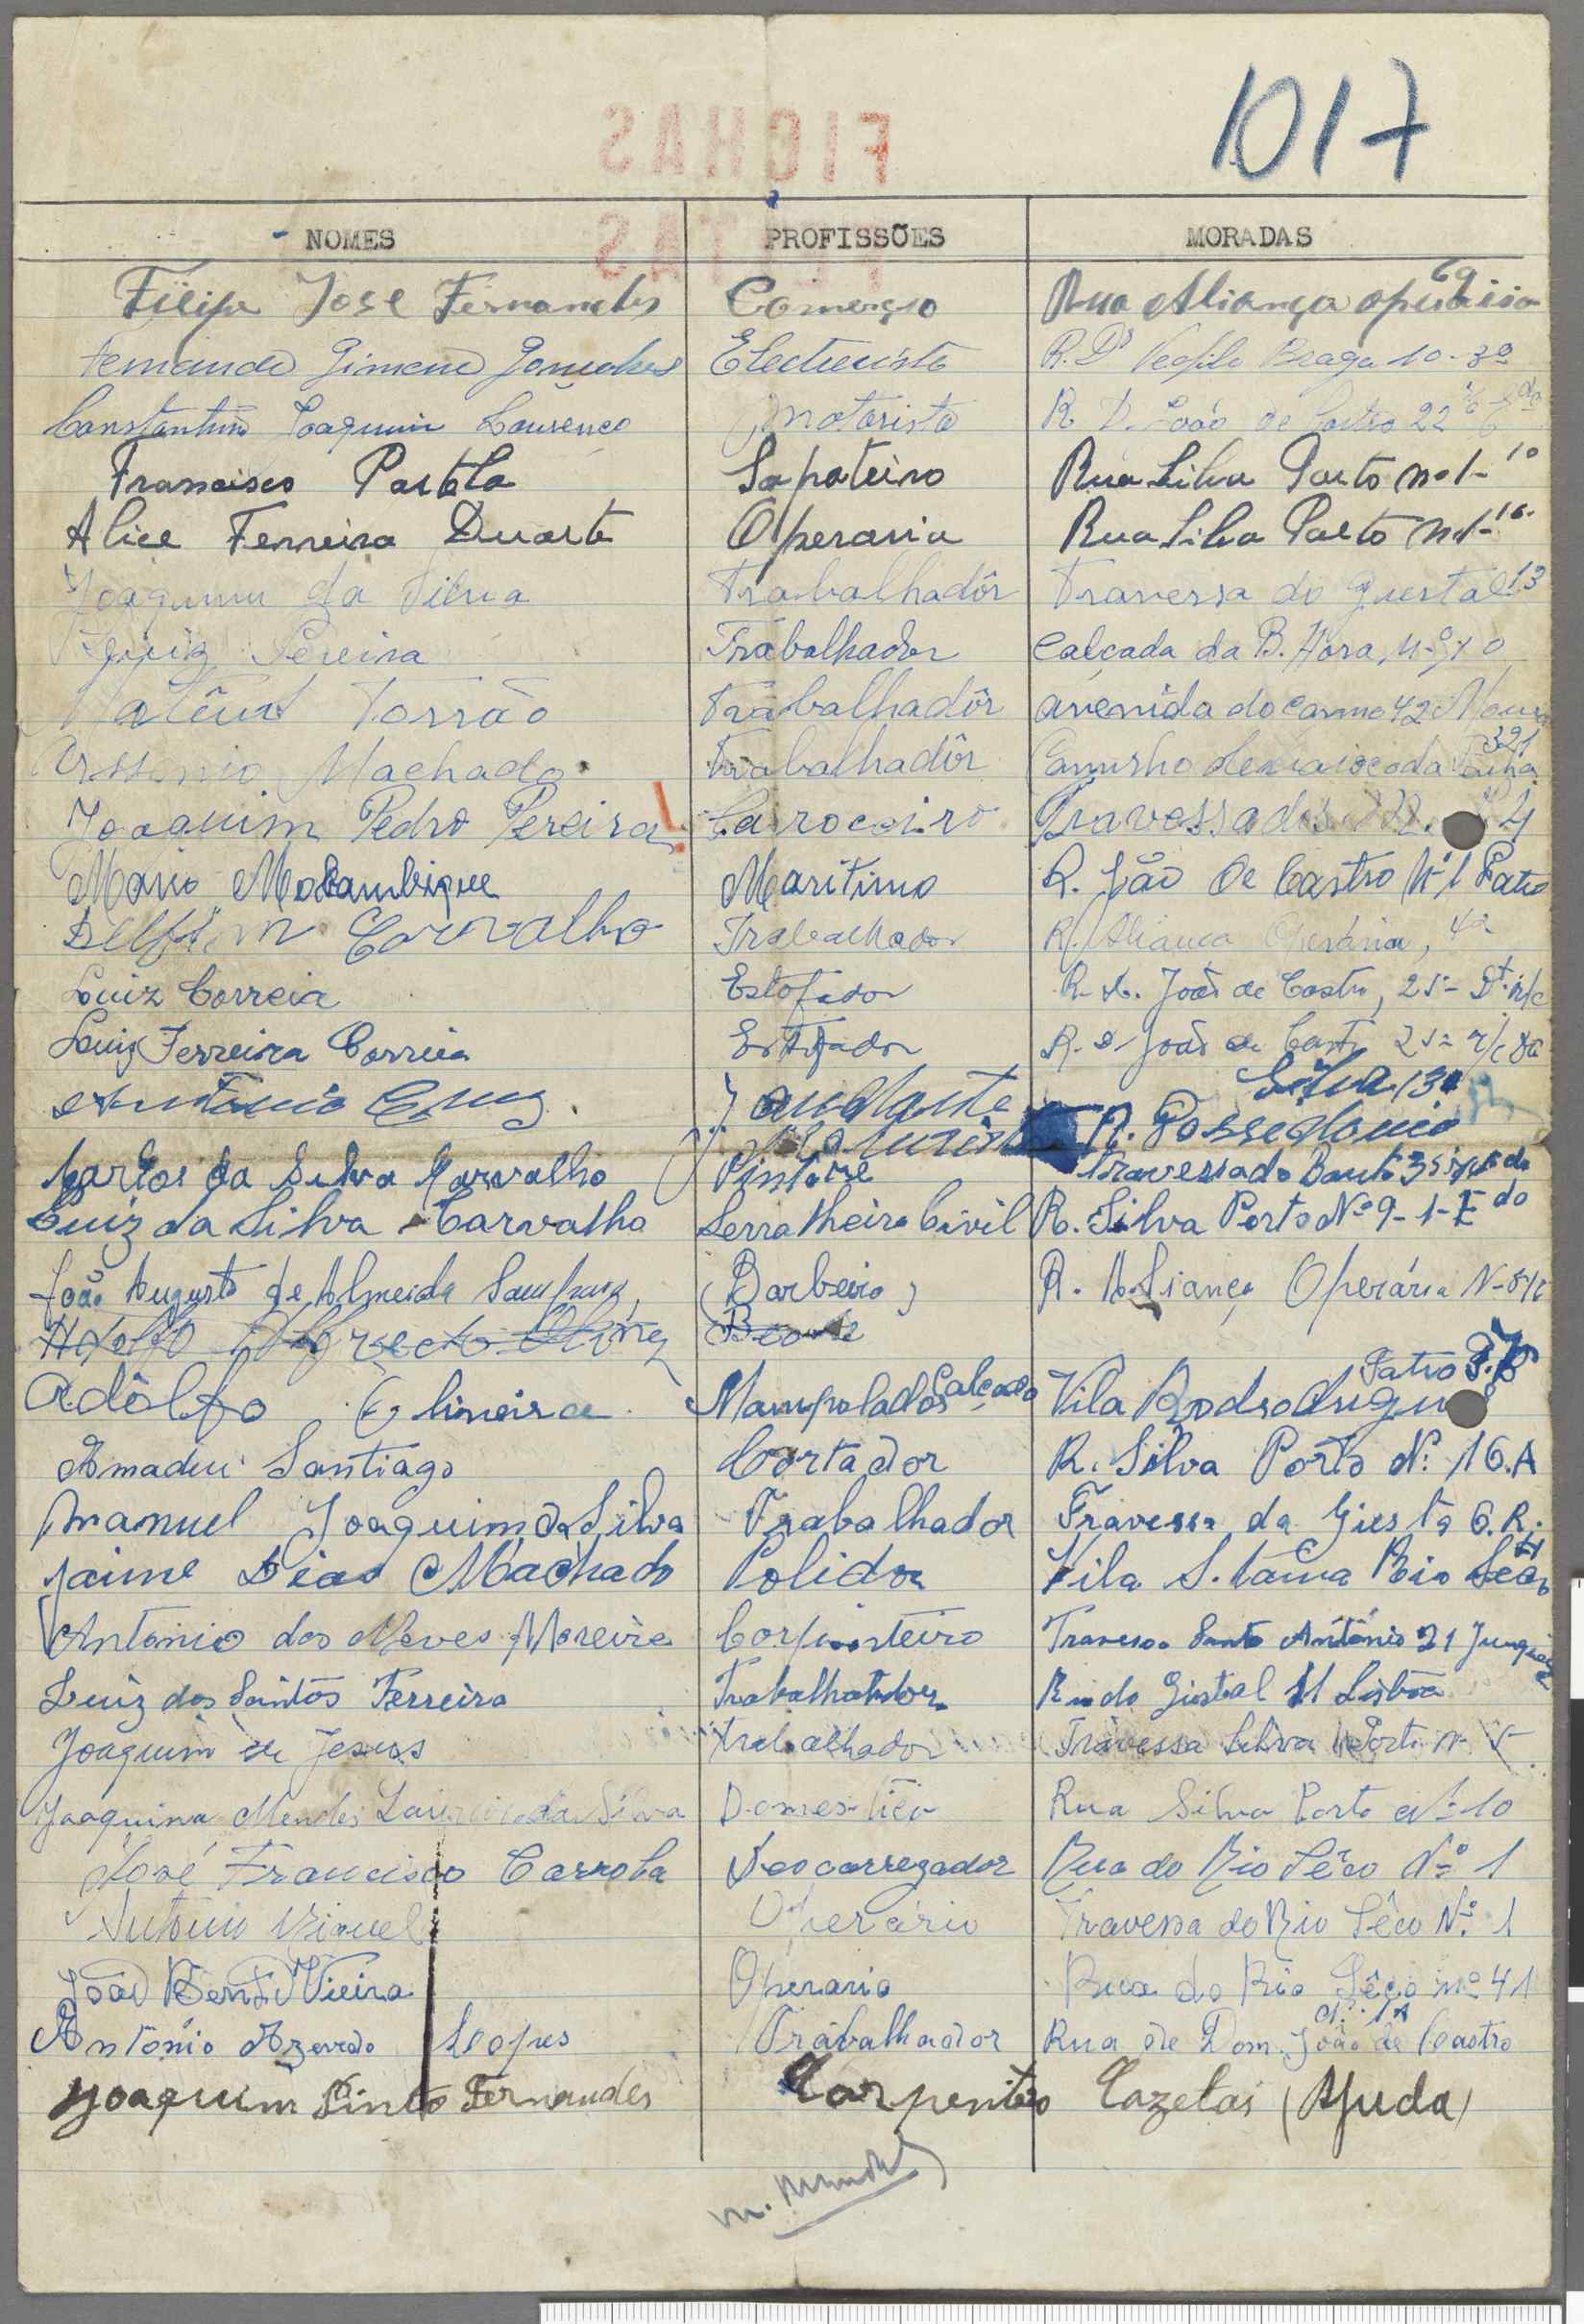 1017
FICHAS
FEITAS
NOMES PROFISSÕES MORADAS
Filipe José Fernandes Comerçio Rua Aliança operaria 69
Fernando Gimeno Gonçalves Electricista R. Dr Teofilo Braga 10-3º
Constantino Joaquim Lourenço Motorista R. D. João de Castro 22
Francisco Portela Sapateiro Rua Silva Porto nº 1-1º
Alice Ferreira Duarte Operaria Rua Silva Porto nº 1-1º
Joaquim da Silva Trabalhadôr Travessa do Guestal 13
Pereira Trabalhador Calçada da B. Hora, nº
Torrão Trabalhadôr avenida do Carmo 42
Arssenio Machado Trabalhadôr 321
Joaquim Pedro Pereira Carroceiro Travessa 4
Mario Mocambique Maritimo R. João de Castro Nº 1 Patio
Delfim Carvalho Trabalhador R. Aliança Operária, 4
Luiz Correia Estofador R. D. João de Castro, 25- Dt. r/c
Luiz Ferreira Correia Estofador R. D. João de Castro 25= r/c
Antonio Cruz Ajudante Silva 13
Motorista R. Possedonio
Carlos da Silva Carvalho Pintore Travessa do
Luiz da Silva Carvalho Serralheiro Civil R. Silva Porto Nº 9-1-Edo
João Augusto de Almeida Sampaio (Barbeiro) R. Aliança Operária
Adolfo
Adôlfo Olineira Manipolador Calçado Vila Patio
Amadeu Santiago Cortador R. Silva Porto Nº 16.A
Manuel Joaquim da Silva Trabalhador Travessa da Giesta 6.R.
Jaime Dias Machado Polidor Vila Rio Seco
Antonio das Neves Moreira Carpinteiro Travessa Santo António 21
Luiz dos Santos Ferreira Trabalhador Rua do Giestal 11 Lisboa
Joaquim de Jesus trabalhador Travessa Silva Porto
Joaquina Mendes da Silva Domestica Rua Silva Porto nº 10
José Francisco Carrola Descarregador Rua do Rio Sêco Nº 1
António Miguel Operário Travessa do Rio Sêco Nº 1
João Bento Vieira Operario Rua do Rio Sêco nº 41
António Azevedo Lopes Trabalhador Rua de Dom João de Castro Nº 1A
Joaquim Pinto Fernandes Carpenteiro Cazelas (Ajuda)